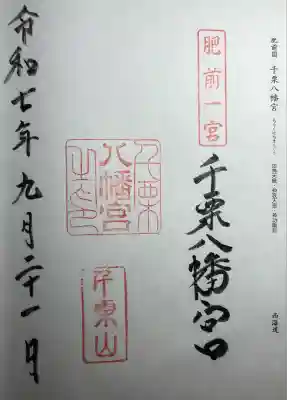 肥前国 千栗八幡宮
西海道
肥前一宮
千栗八幡宮
八幡宮
千栗山
令和七年九月二十一日